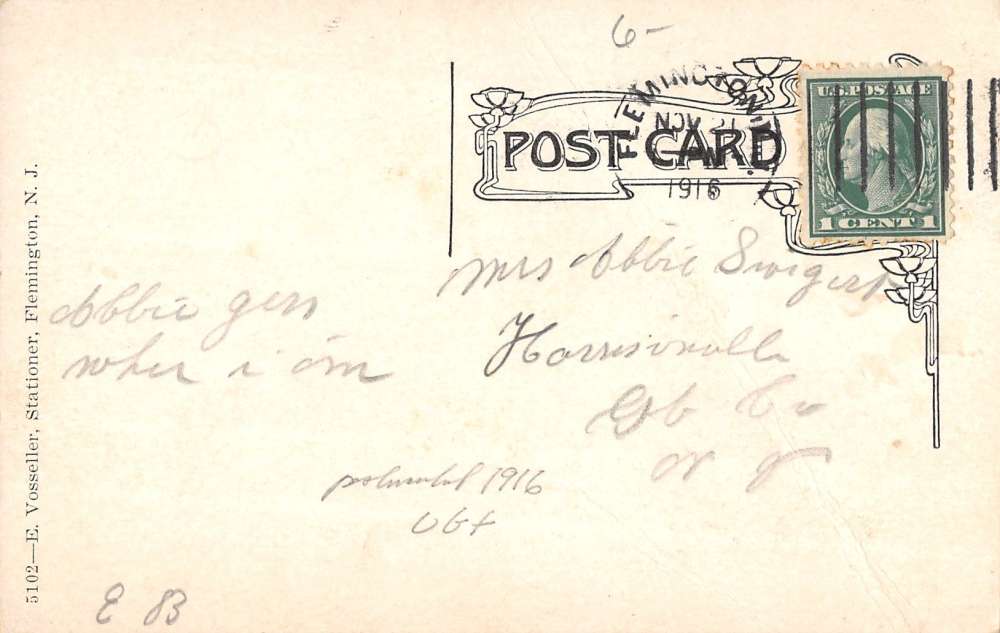 6-
FLEMINGTON
NOV
1916
POST CARD
U.S. POSTAGE
1 CENT 1
Mrs Abbie Swigert
Harrisonvolle
Glo Co
N J
Abbie gess
wher i am
postmarked 1916
UGF
E B
5102—E. Vosseller, Stationer, Flemington, N. J.